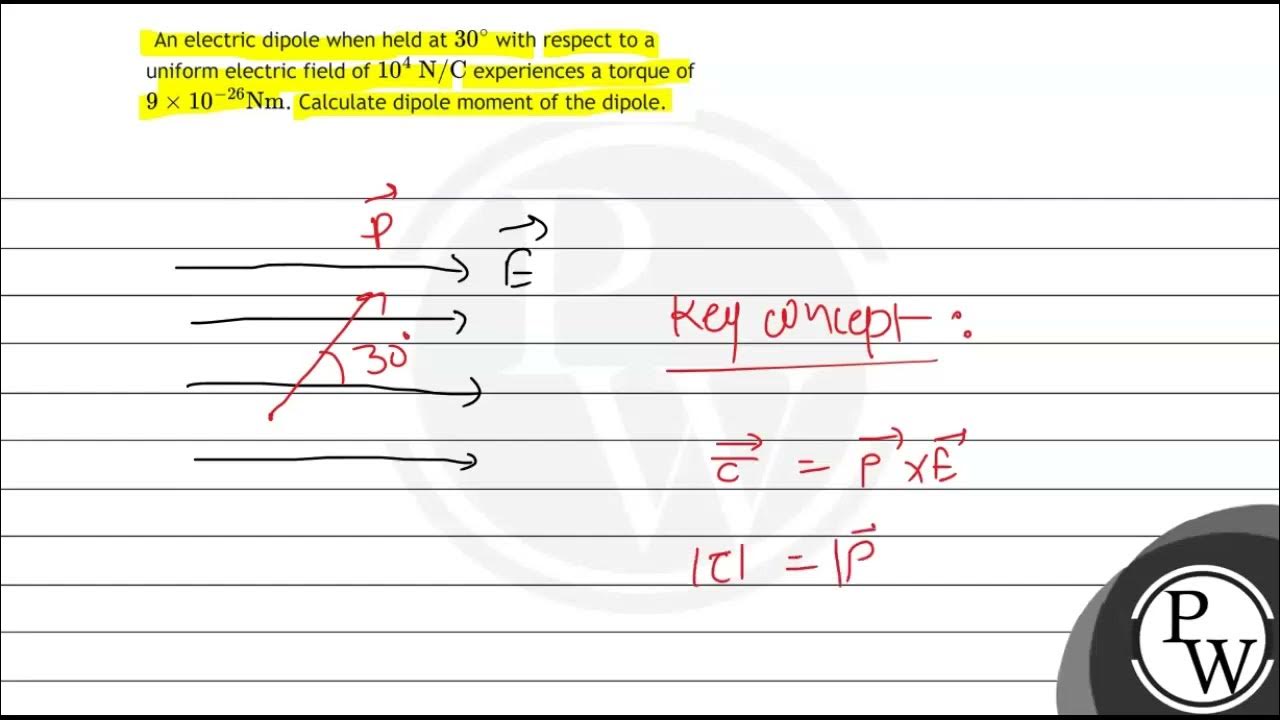 An electric dipole when held at 30° with respect to a
uniform electric field of 10⁴ N/C experiences a torque of
9 × 10⁻²⁶Nm. Calculate dipole moment of the dipole.
P
E
30°
Key concept :
τ = P × E
|τ| = |P
P
W
P
W